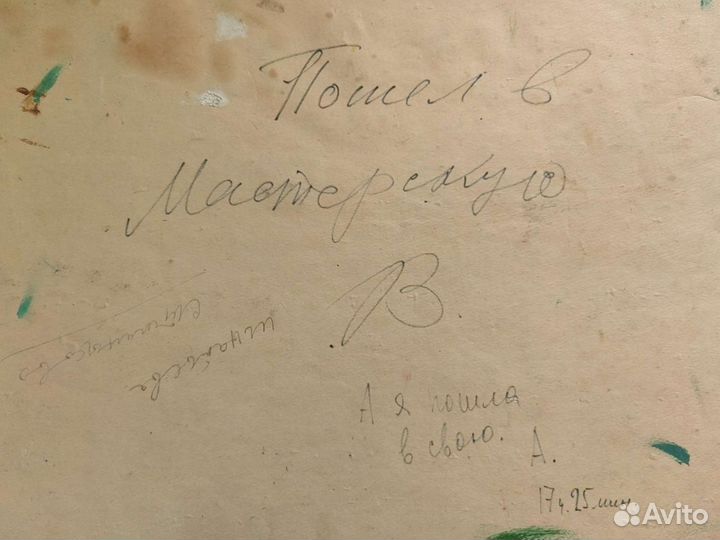 Пошел в
Мастерскую
В.
А я пошла
в свою.
А.
17ч.25мин
Avito